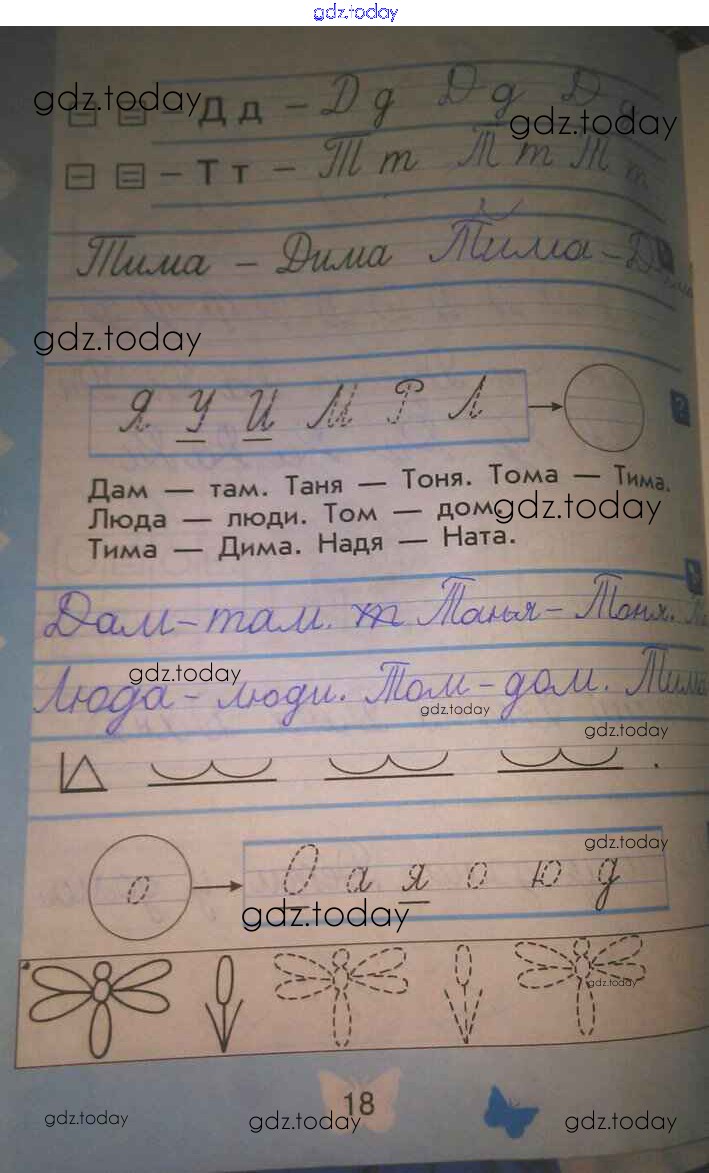 gdz.today
gdz.today
– Д д – Д д Д д Д
gdz.today
– Т т – Т т Т т Т т
Тима – Дима Тима – Д
gdz.today
Я У И М Р Л
Дам — там. Таня — Тоня. Тома — Тима.
Люда — люди. Том — дом.
gdz.today
Тима — Дима. Надя — Ната.
Дам – там. т Танья – Тоня.
Люда – люди. Том – дом. Тима
gdz.today
gdz.today
gdz.today
gdz.today
о О а я о ю д
gdz.today
gdz.today
18
gdz.today
gdz.today
gdz.today